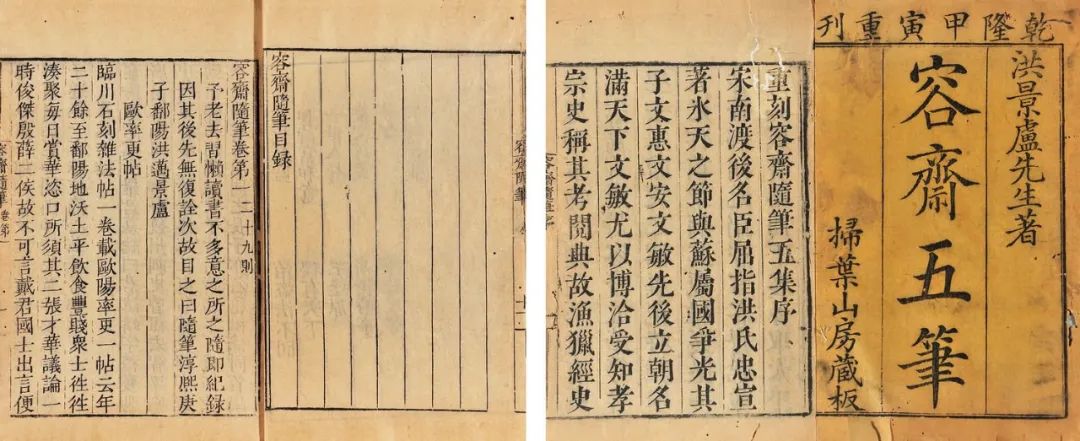 乾隆甲寅重刊
洪景盧先生著
容齋五筆
掃葉山房藏板
重刻容齋隨筆五集序
宋南渡後名臣屈指洪氏忠宣
著氷天之節與蘇屬國爭光其
子文惠文安文敏先後立朝名
滿天下文敏尤以博洽受知孝
宗史稱其考閱典故漁獵經史
容齋隨筆
容齋隨筆目録
容齋隨筆卷第一 二十九則
予老去習懶讀書不多意之所之隨即紀録
因其後先無復詮次故目之曰隨筆淳熙庚
子鄱陽洪邁景盧
歐率更帖
臨川石刻雜法帖一卷載歐陽率更一帖云年
二十餘至鄱陽地沃土平飲食豐賤衆士徃徃
湊聚每日賞華恣口所須其二張才華議論一
時俊傑殷薛二侯故不可言戴君國士出言便
容齋隨筆 卷第一